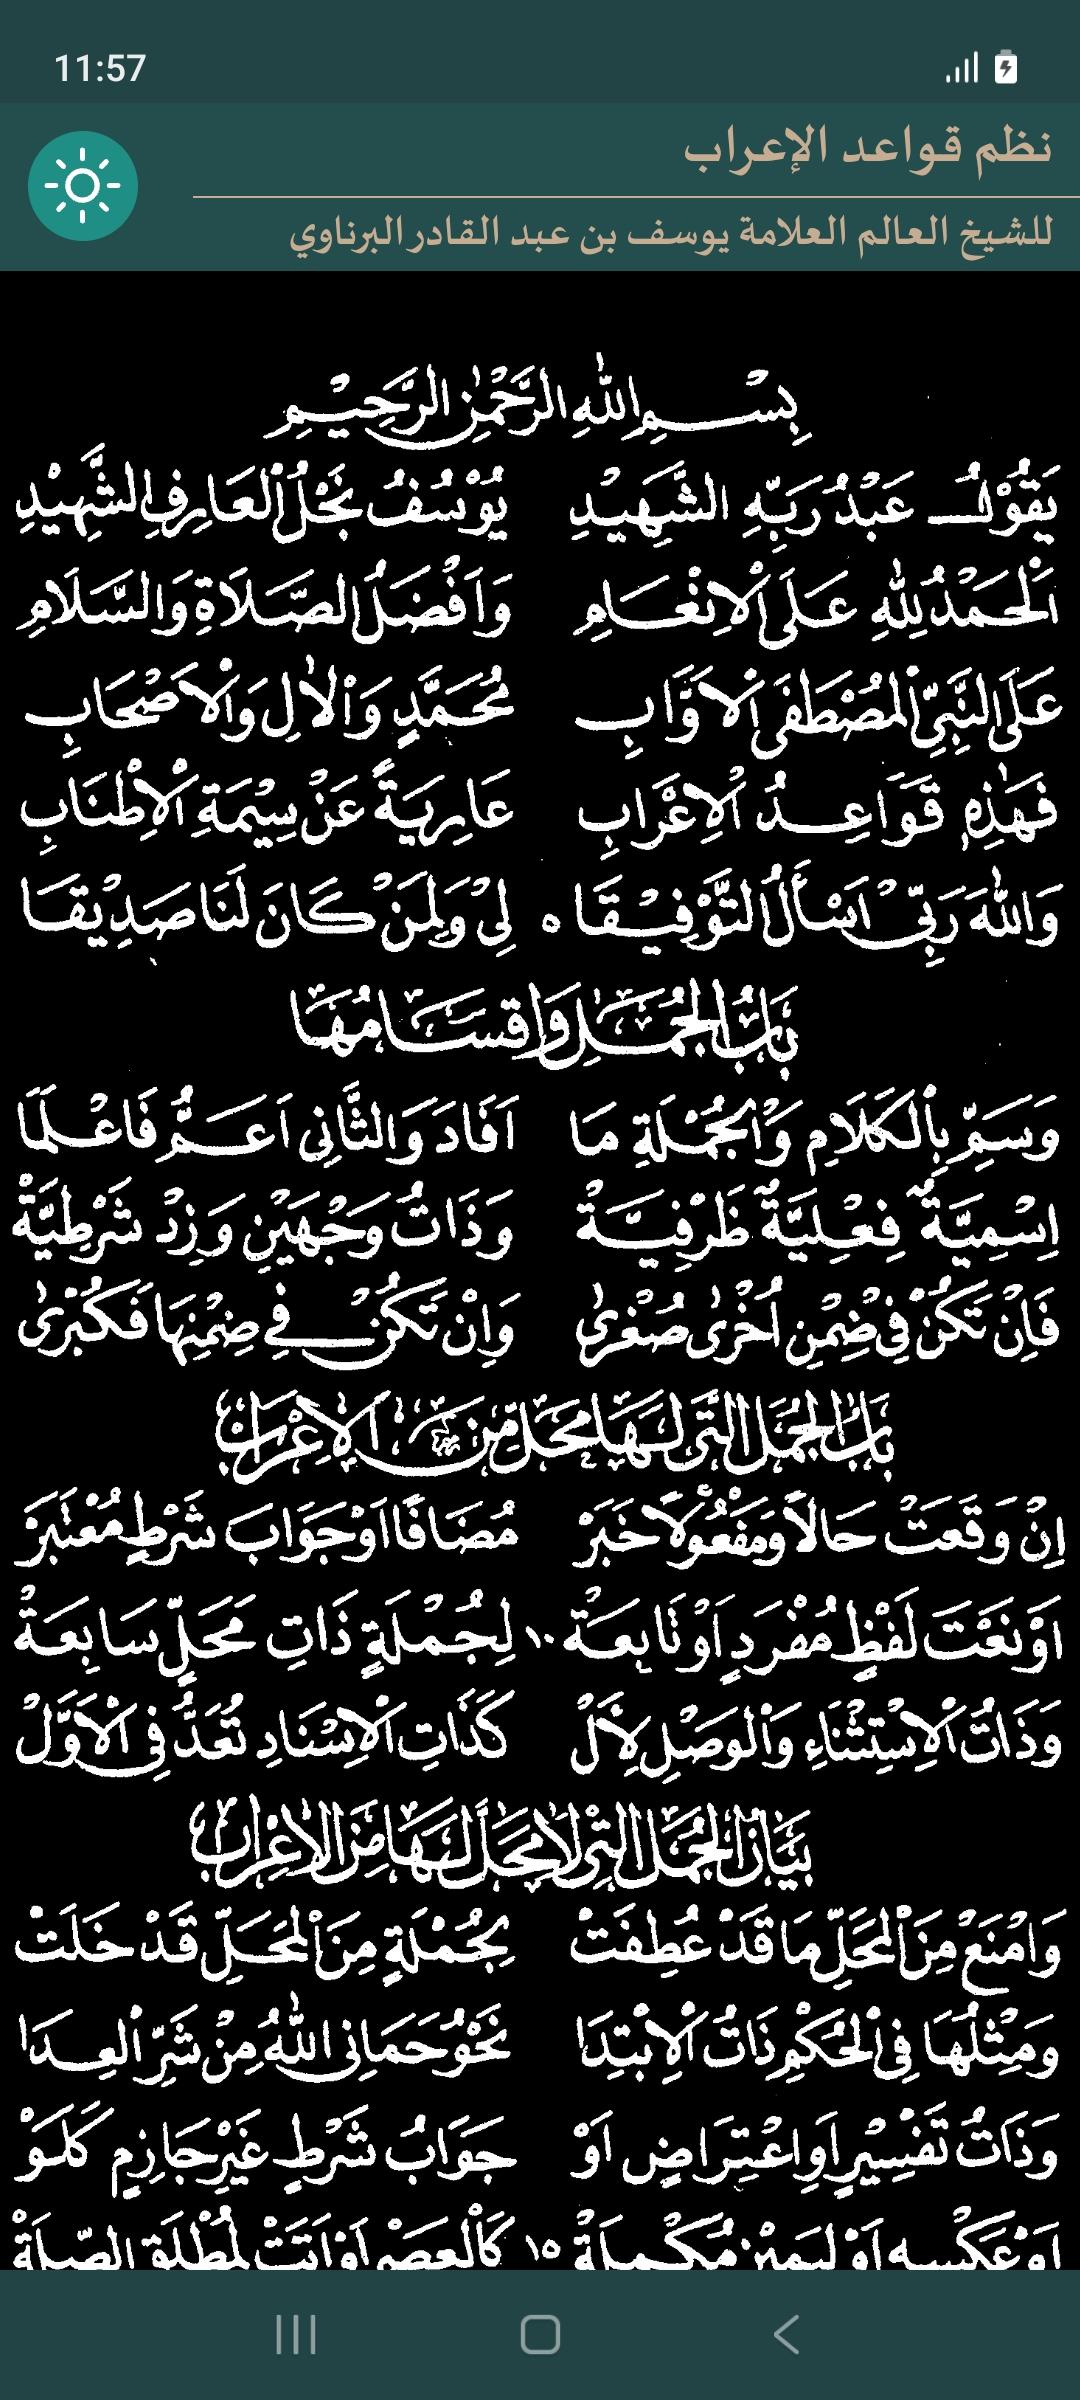 11:57
نظم قواعد الإعراب
للشيخ العالم العلامة يوسف بن عبد القادر البرناوي
بِسْمِ اللّٰهِ الرَّحْمٰنِ الرَّحِيْمِ
يَقُوْلُ عَبْدُ رَبِّهِ الشَّهِيْدِ يُوْسُفُ نَجْلُ الْعَارِفِ الشَّهِيْدِ
اَلْحَمْدُ لِلّٰهِ عَلَى الْاِنْعَامِ وَاَفْضَلُ الصَّلَاةِ وَالسَّلَامِ
عَلَى النَّبِيِّ الْمُصْطَفَى الْاَوَّابِ مُحَمَّدٍ وَالْاٰلِ وَالْاَصْحَابِ
فَهٰذِهِ قَوَاعِدُ الْاِعْرَابِ عَارِيَةً عَنْ سِيْمَةِ الْاِطْنَابِ
وَاللّٰهَ رَبِّيْ اَسْأَلُ التَّوْفِيْقَا ٥ لِيْ وَلِمَنْ كَانَ لَنَا صَدِيْقَا
بَابُ الْجُمَلِ وَاَقْسَامُهَا
وَسَمِّ بِالْكَلَامِ وَالْجُمْلَةِ مَا اَفَادَ وَالثَّانِى اَعَمُّ فَاعْلَمَا
اِسْمِيَّةٌ فِعْلِيَّةٌ ظَرْفِيَّةْ وَذَاتُ وَجْهَيْنِ وَزِدْ شَرْطِيَّةْ
فَاِنْ تَكُنْ فِيْ ضِمْنِ اُخْرٰى صُغْرٰى وَاِنْ تَكُنْ فِي ضِمْنِهَا فَكُبْرٰى
بَابُ الْجُمَلِ الَّتِى لَهَا مَحَلٌّ مِّنَ الْاِعْرَابْ
اِنْ وَقَعَتْ حَالًا وَمَفْعُوْلًا خَبَرْ مُضَافًا اَوْ جَوَابَ شَرْطٍ مُعْتَبَرْ
اَوْ نَعْتَ لَفْظٍ مُفْرَدٍ اَوْ تَابِعَةْ ١٠ لِجُمْلَةٍ ذَاتِ مَحَلٍّ سَابِعَةْ
وَذَاتُ الْاِسْتِثْنَاءِ وَالْوَصْلِ لِاَلْ كَذَاتِ الْاِسْنَادِ تُعَدُّ فِى الْاَوَّلْ
بَيَانُ الْجُمَلِ الَّتِيْ لَا مَحَلَّ لَهَا مِنَ الْاِعْرَابْ
وَامْنَعْ مِنَ الْمَحَلِّ مَا قَدْ عُطِفَتْ بِجُمْلَةٍ مِنَ الْمَحَلِّ قَدْ خَلَتْ
وَمِثْلُهَا فِى الْحُكْمِ ذَاتُ الْاِبْتِدَا نَحْوُ حَمَانِى اللّٰهُ مِنْ شَرِّ الْعِدَا
وَذَاتُ تَفْسِيْرٍ اَوِ اعْتِرَاضٍ اَوْ جَوَابُ شَرْطٍ غَيْرِ جَازِمٍ كَلَوْ
اَوْ عَكْسِهِ اَوْ لِيَمِيْنٍ مُكْمِلَةْ ١٥ كَالْعَصْرِ اَوْ اَتَتْ لِمُطْلَقِ الصِّلَةْ